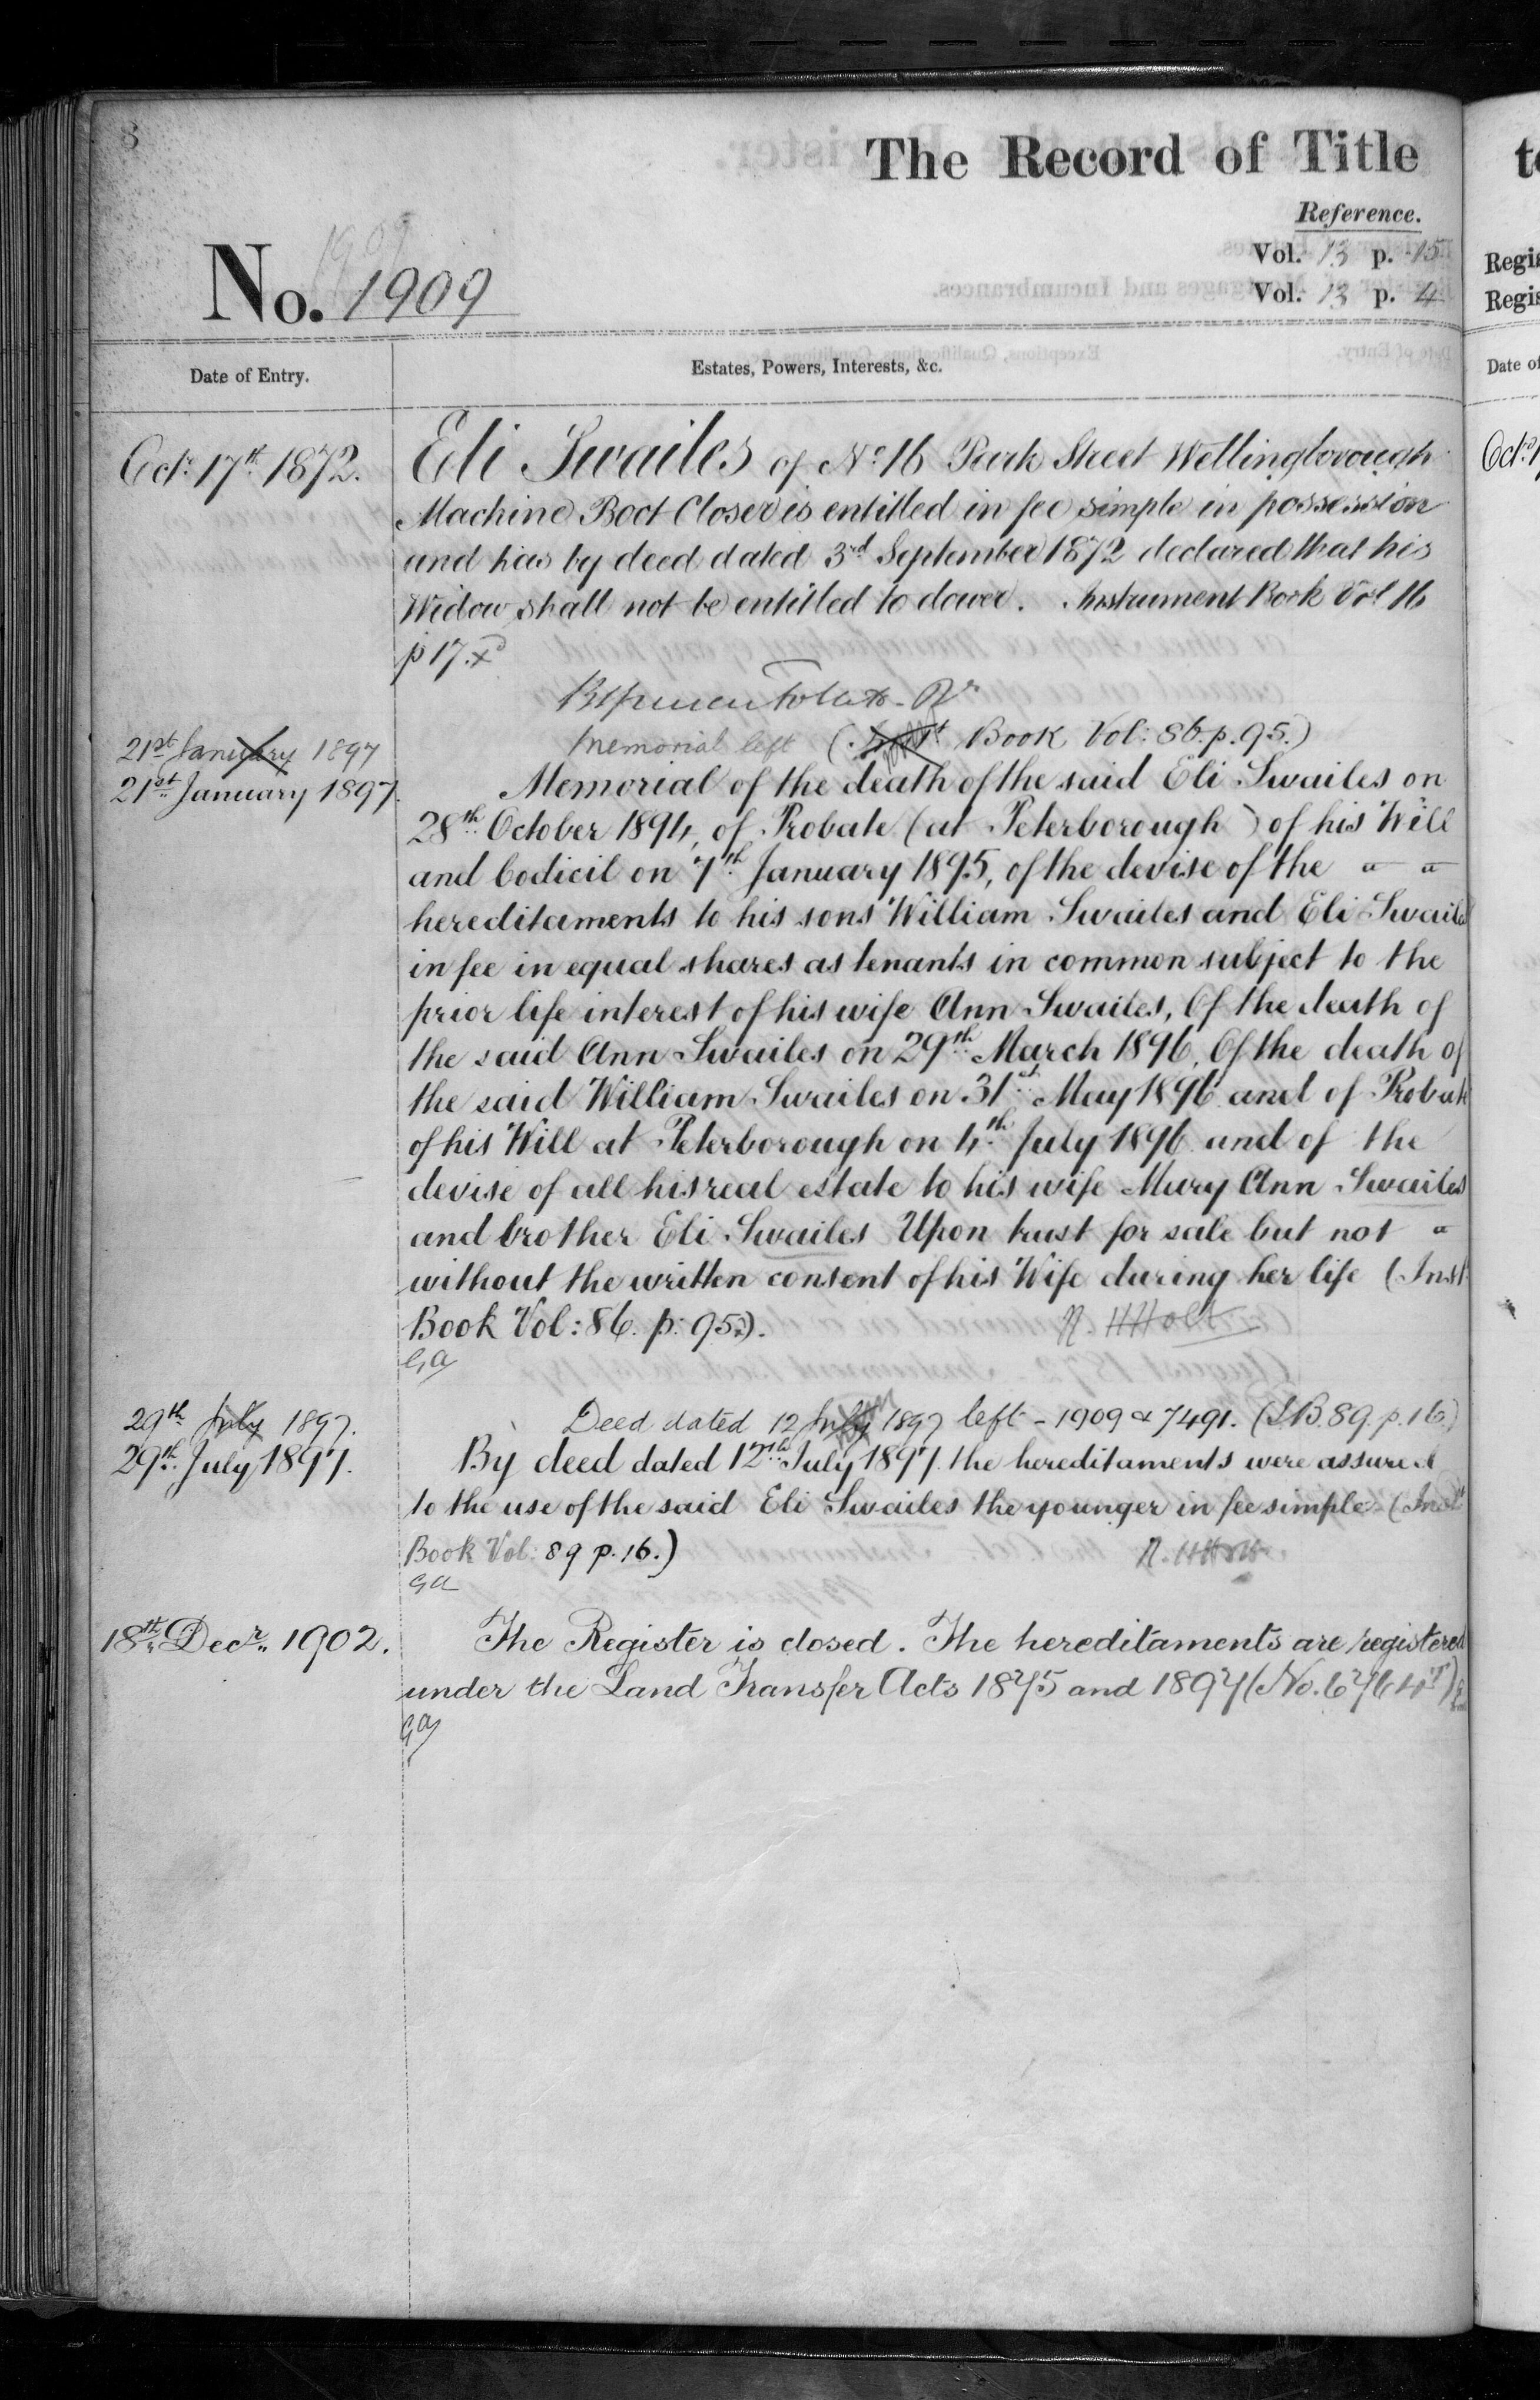 8
The Record of Title
Reference.
No. 1909
Vol. 13 p. 15
Vol. 13 p. 4
Date of Entry.
Estates, Powers, Interests, &c.
Octr. 17th 1872.
Eli Swailes of No. 16 Park Street Wellingborough
Machine Boot Closer is entitled in fee simple in possession
and has by deed dated 3rd September 1872 declared that his
Widow shall not be entitled to dower. Instrument Book Vol 16
p 17.
21st January 1897
Memorial left ( Book Vol: 86. p. 95.)
21st January 1897.
Memorial of the death of the said Eli Swailes on
28th October 1894, of Probate (at Peterborough) of his Will
and Codicil on 7th January 1895, of the devise of the
hereditaments to his sons William Swailes and Eli Swailes
in fee in equal shares as tenants in common subject to the
prior life interest of his wife Ann Swailes, Of the death of
the said Ann Swailes on 29th March 1896, Of the death of
the said William Swailes on 31st May 1896 and of Probate
of his Will at Peterborough on 4th July 1896 and of the
devise of all his real estate to his wife Mary Ann Swailes
and brother Eli Swailes Upon trust for sale but not
without the written consent of his Wife during her life (Inst
Book Vol: 86. p: 95.).
R. H Holt
GA
29th July 1897.
Deed dated 12 July 1897 left - 1909 & 7491. (I.B. 89. p. 16.)
29th July 1897.
By deed dated 12th July 1897 the hereditaments were assured
to the use of the said Eli Swailes the younger in fee simple (Inst
Book Vol: 89 p. 16.)
R. H Holt
GA
18th Decr. 1902.
The Register is closed. The hereditaments are registered
under the Land Transfer Acts 1875 and 1897 (No.
GA
to
Regis
Regis
Date of
Octr. 1